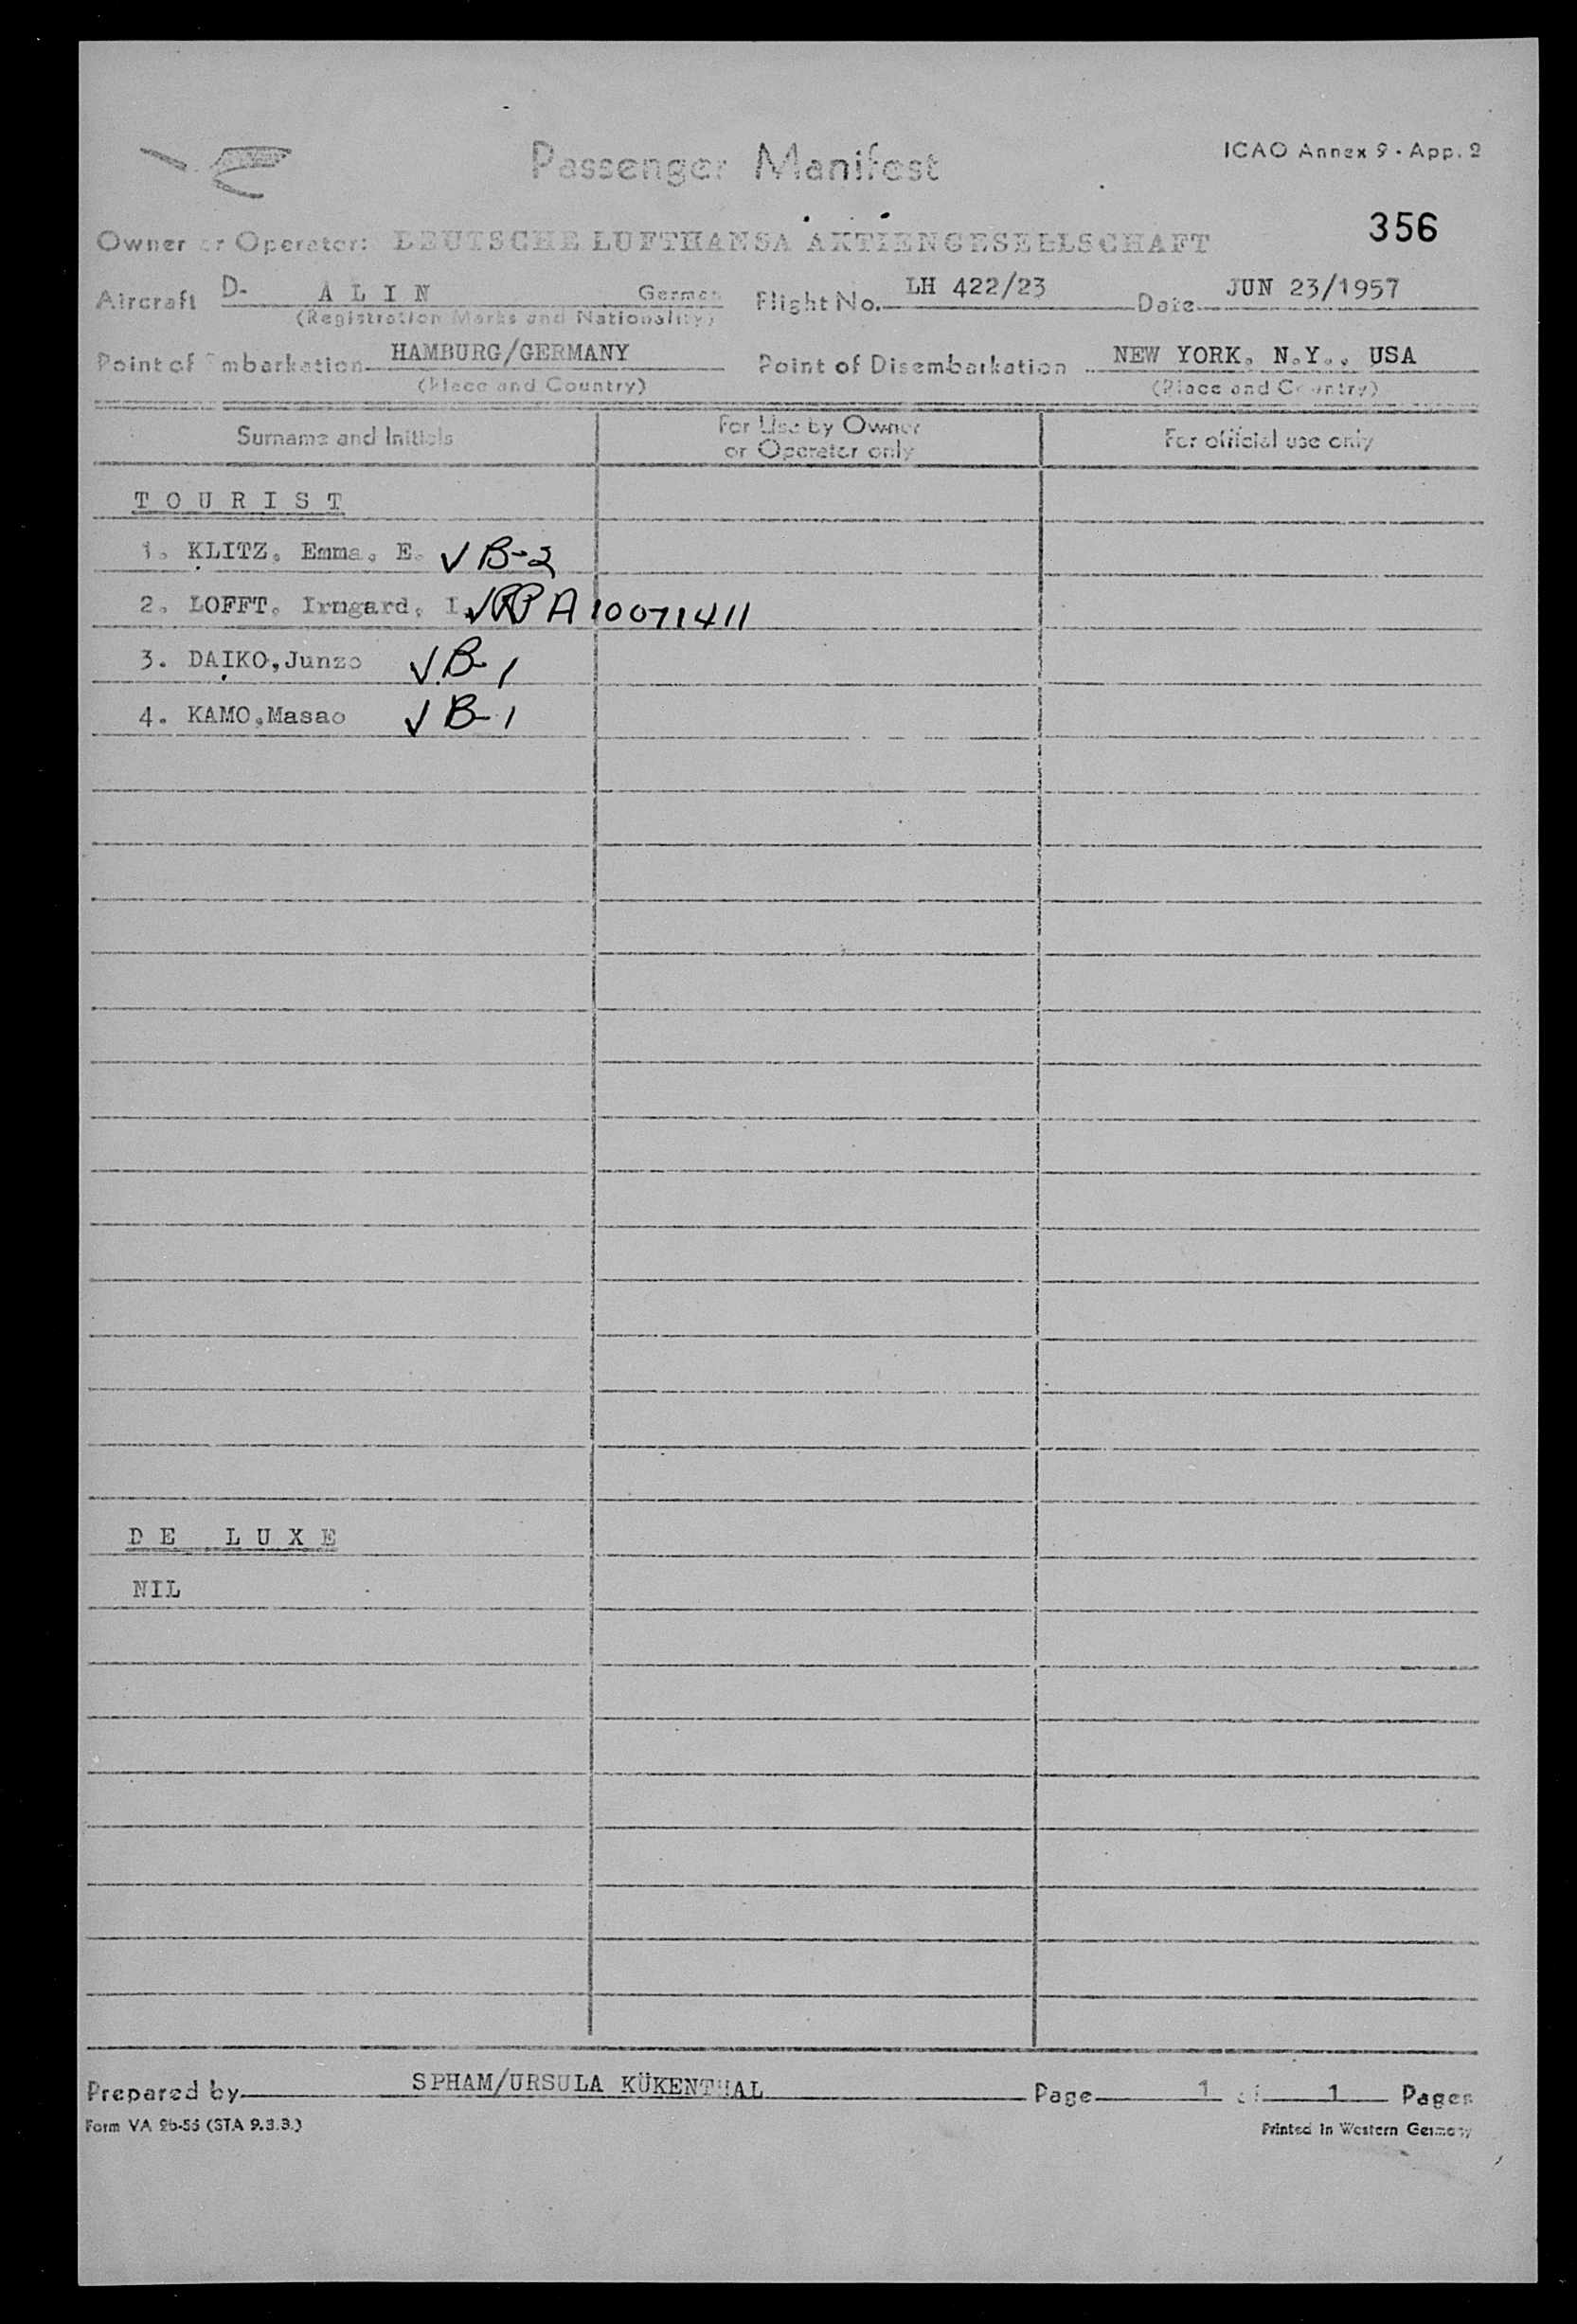 Passenger Manifest
ICAO Annex 9 - App. 2
356
Owner or Operator: DEUTSCHE LUFTHANSA AKTIENGESELLSCHAFT
Aircraft D- A L I N German Flight No. LH 422/23 Date JUN 23/1957
(Registration Marks and Nationality)
Point of Embarkation HAMBURG/GERMANY Point of Disembarkation NEW YORK, N.Y., USA
(Place and Country) (Place and Country)
Surname and Initials For Use by Owner or Operator only For official use only
T O U R I S T
1. KLITZ, Emma, E. √ B-2
2. LOFFT, Irmgard, I. √ A10071411
3. DAIKO, Junzo √ B-1
4. KAMO, Masao √ B-1
D E L U X E
NIL
Prepared by SPHAM/URSULA KÜKENTHAL Page 1 of 1 Pages
Form VA 26-55 (STA 9.3.3.) Printed in Western Germany